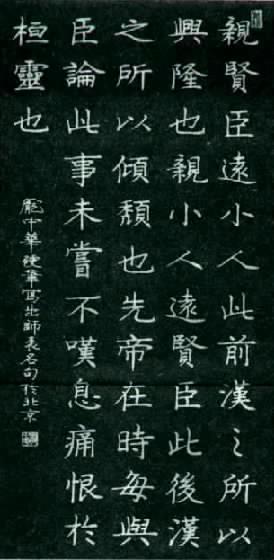 親賢臣遠小人此前漢之所以
興隆也親小人遠賢臣此後漢
之所以傾頹也先帝在時每與
臣論此事未嘗不嘆息痛恨於
桓靈也
龐中華硬筆寫出師表名句於北京